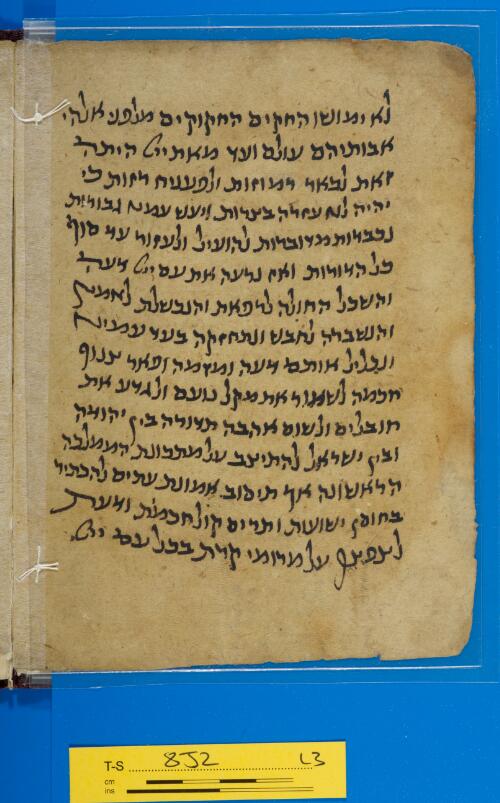 לא ימושו החקים החקוקים מלפני אלהי
אבותיהם עולם ועד מאת ייי היתה
זאת לבאר רמוזות ולפענח רזות כי
יהיה לנו עזרה בצרות ויעש עמנו גבורות
נכבדות מדוברות להועיל ולעזור עד סוף
כל הדורות ואז נדעה את עם ייי דעה
והשכל החולה לרפאת והנכשלת לאמץ
והנשברה לחבש ונתחזקה בעד עמינו
ונכליל אותם דעה ומזמה ופאר צנוף
חכמה לשמור את מקל נועם ולגדע את
חובלים ולשום אהבה תדורה בין יהודה
ובין ישראל להתיצב על מתכונת הממלכה
הראשונה אף תיסוב אמונת עתים להכתיר
בחוסן ישועות ותרים קול חכמות ודעת
על מרומי קרת בכל עם ייי
T-S 8J2 L3
cm
ins